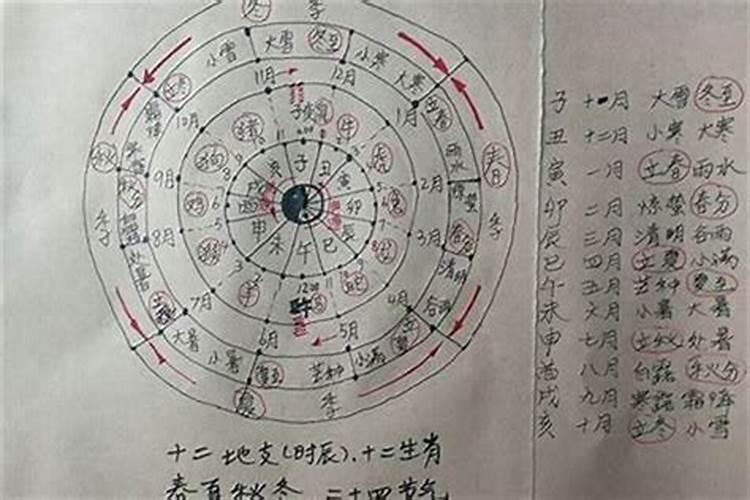 冬 季
小雪 大雪 冬至 小寒 大寒
11月 12月
立冬 10月 1月 立春
子 丑 寅 卯 辰 巳 午 未 申 酉 戌 亥
鼠 牛 虎 兔
猪 狗 鸡 猴 羊
秋 季
春 季
雨水 惊蛰 春分 清明 谷雨
9月 8月 7月
2月 3月 4月
处暑 立秋
大暑 小暑 夏至 芒种 小满 立夏
6月 5月
12:00
夏 季
十二地支(时辰)、十二生肖
春夏秋冬 二十四节气
子 十一月 大雪 冬至
丑 十二月 小寒 大寒
寅 一月 立春 雨水
卯 二月 惊蛰 春分
辰 三月 清明 谷雨
巳 四月 立夏 小满
午 五月 芒种 夏至
未 六月 小暑 大暑
申 七月 立秋 处暑
酉 八月 白露 秋分
戌 九月 寒露 霜降
亥 十月 立冬 小雪